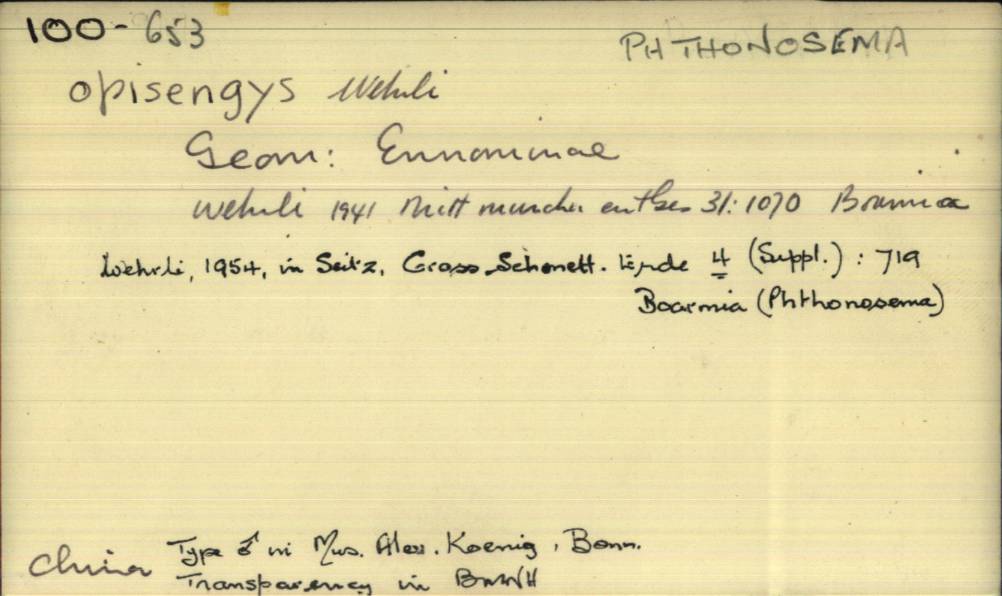 100-653
PHTHONOSEMA
opisengys Wehrli
Geom: Ennominae
Wehrli 1941 Mitt munchn entGes 31: 1070 Boarmia
Wehrli, 1954, in Seitz, Gross-Schmett. Erde 4 (Suppl.) : 719
Boarmia (Phthonosema)
Type ♂ in Mus. Alex. Koenig, Bonn.
China
Transparency in BMNH